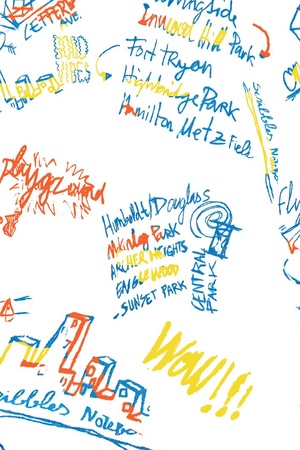 Morningside
LEFFERTS
AVE.
Inwood Hill Park
OLD
VIBES
Fort Tryon
Highbridge Park
Hamilton Metz Field
Scribbles Notebo
Playground
Humboldt/Douglass
Mckinley Park
ARCHER HEIGHTS
ENGLEWOOD
-SUNSET PARK
CENTRAL
PARK
Fly
WOW!!!
ribbles Notebo